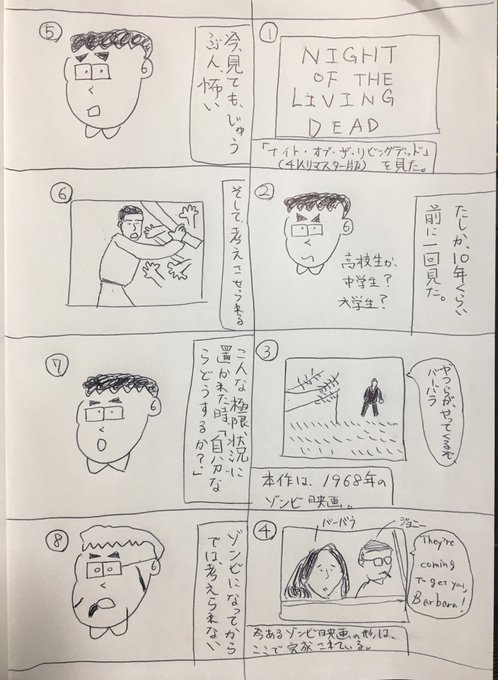 ①
NIGHT
OF THE
LIVING
DEAD
「ナイト・オブ・ザ・リビングデッド」
(4Kリマスター版) を見た。
②
たしか、10年くらい
前に一回見た。
高校生か、
中学生?
大学生?
③
ヤツらが、やってくるぞ、
バーバラ
本作は、1968年の
ゾンビ映画。
④
バーバラ
ジョニー
They're
coming
to get you,
Barbara!
今あるゾンビ映画の形は、
ここで完成されている。
⑤
今、見ても、じゅう
ぶん、怖い
⑥
そして、考えさせられる
⑦
こんな極限状況に
置かれた時、「自分な
らどうするか?」
⑧
ゾンビになってから
では、考えられない